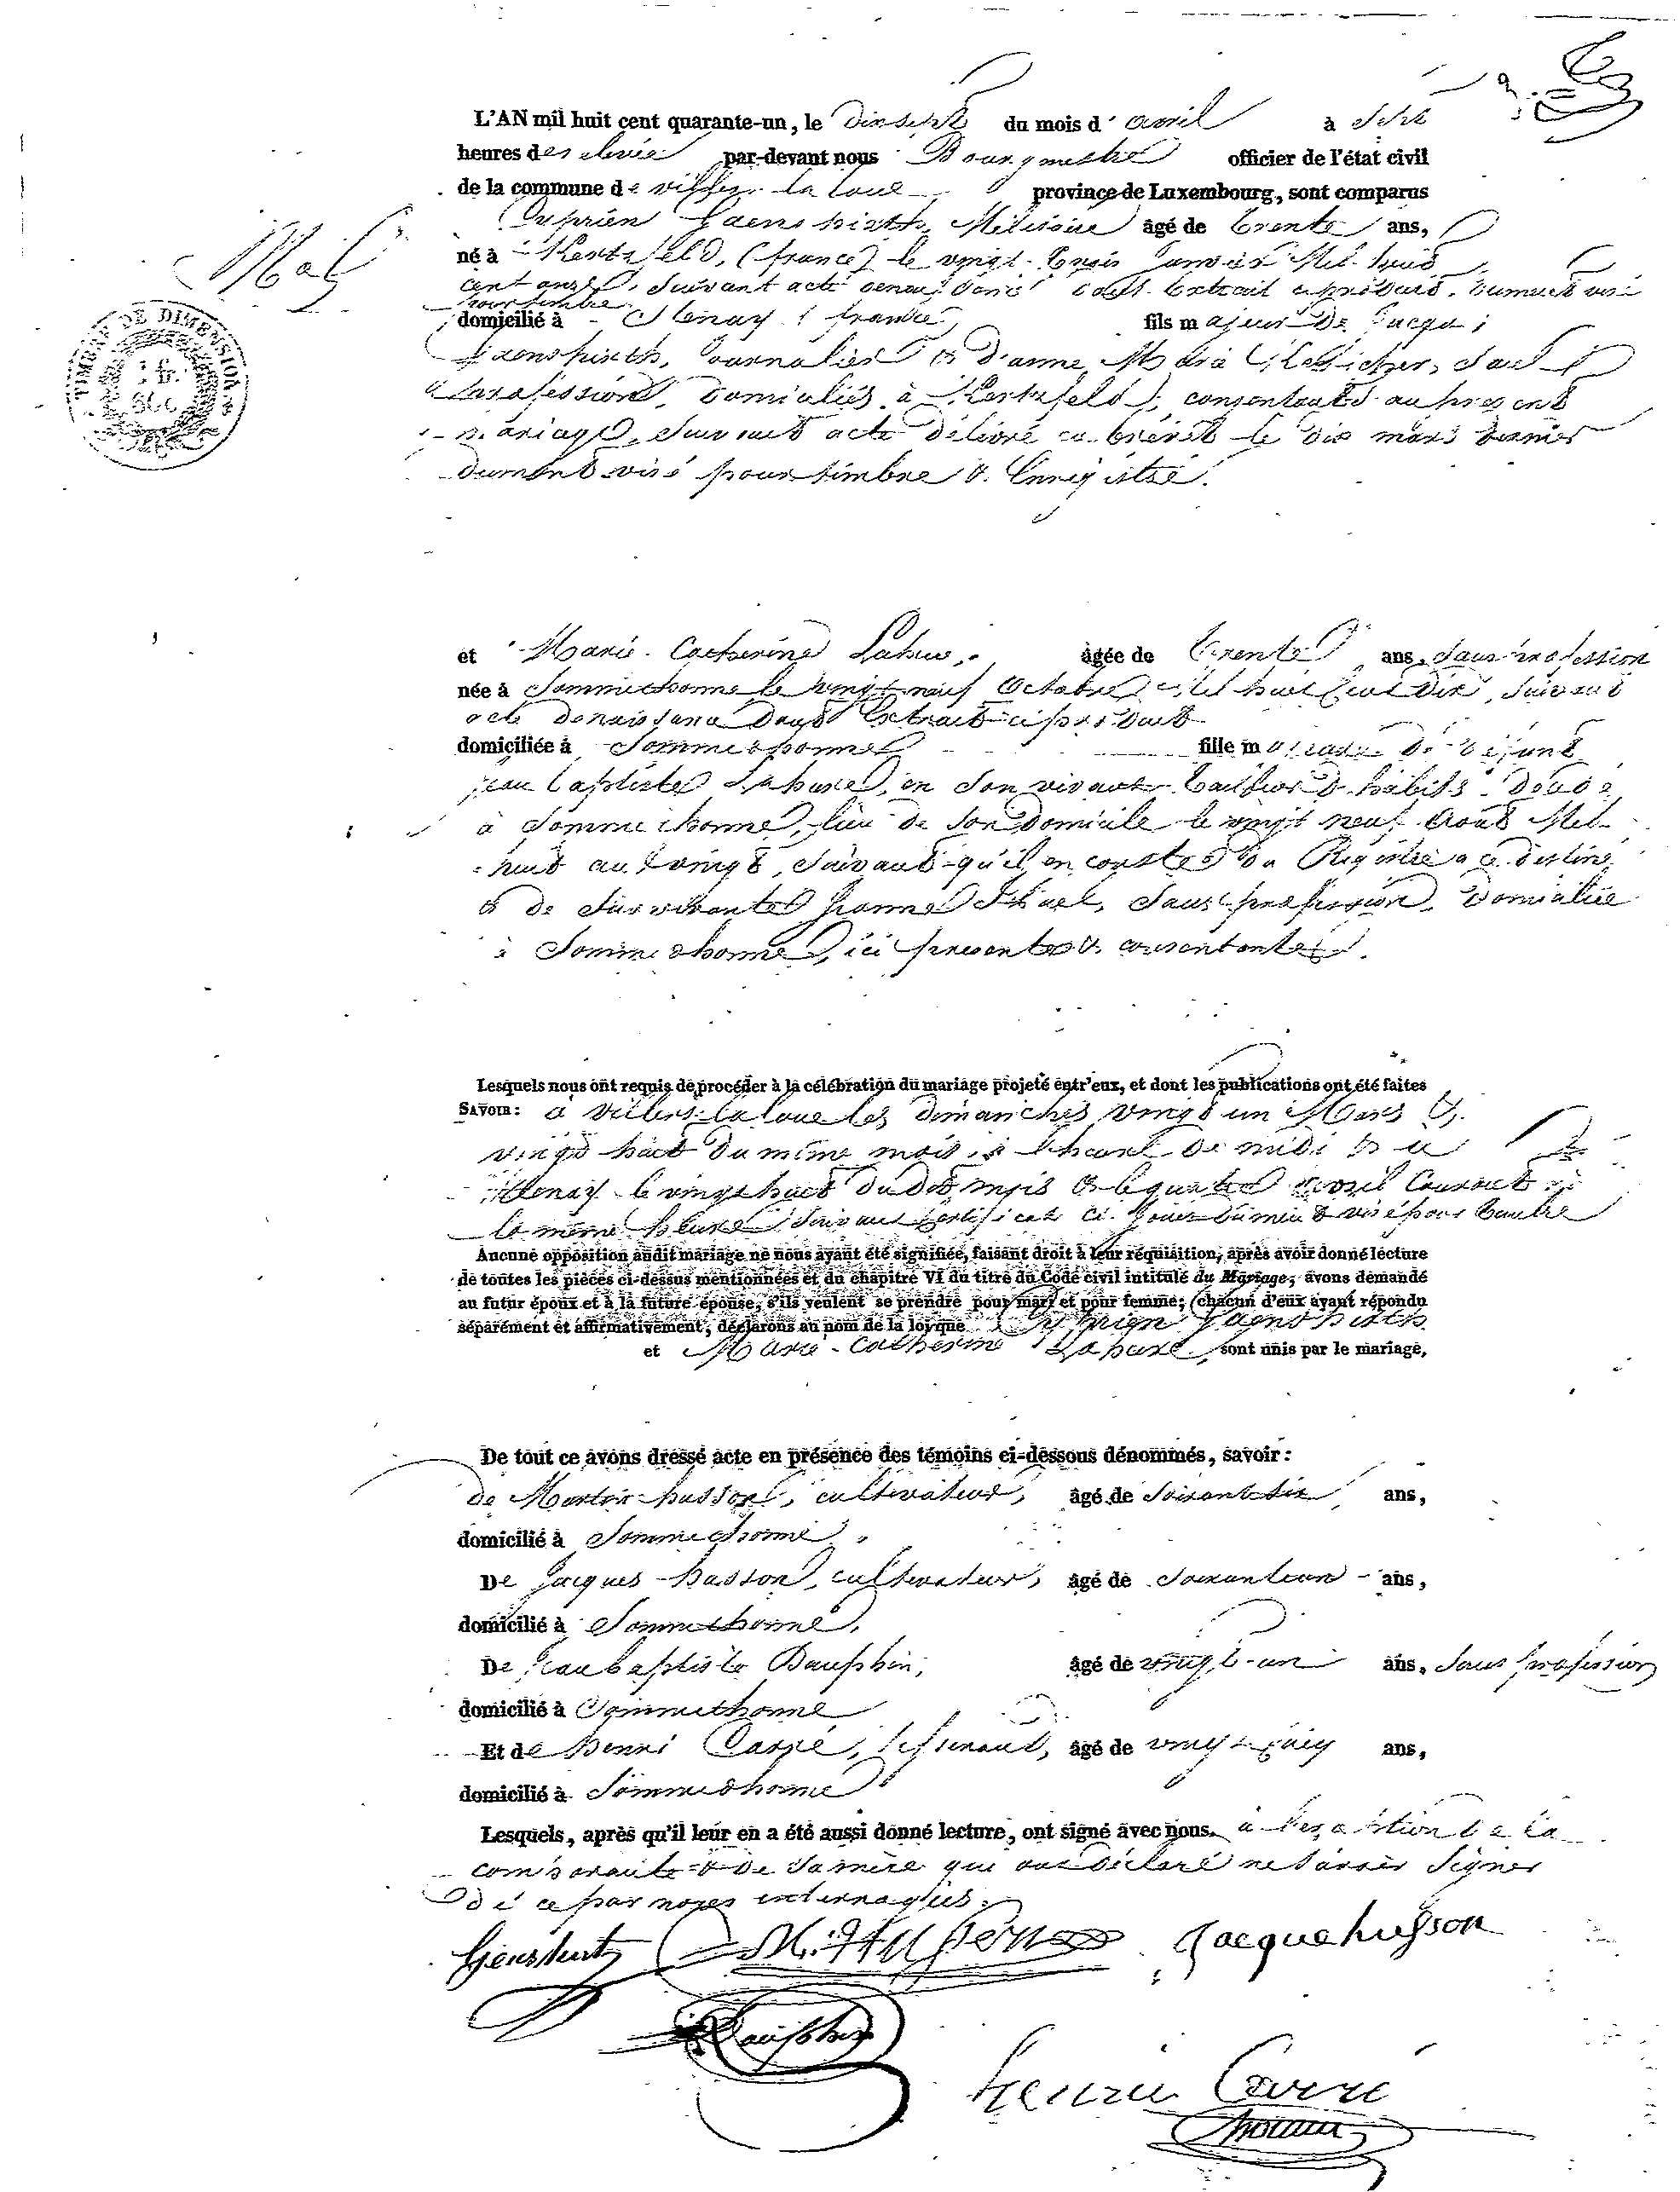 L'AN mil huit cent quarante-un, le dixsept du mois d'avril à Sept
heures de relevée par-devant nous Bourgmestre officier de l'état civil
de la commune de villers-la loue province de Luxembourg, sont comparus
Cyprien Militaire âgé de trente ans,
né à Kertzfeld, (france) le vingt-trois janvier Mil huit
cent onze, suivant acte dont Extrait ci produit, dument visé
pour timbre
domicilié à Stenay (france) fils majeur de Jacques
journalier & d'anne Maria sans
profession, domiciliés à Kertzfeld, consentants au present
mariage, suivant acte délivré en brévet le dix mars dernier
dument visé pour timbre & Enregistré.
et Marie-Catherine Lahure, âgée de trente ans, sans profession
née à Sommethonne le vingt neuf Octobre Mil huit cent dix, suivant
acte de naissance dont Extrait ci produit
domiciliée à Sommethonne fille majeure de défunt
jean baptiste Lahure, en son vivant tailleur d'habits, décédé
à Sommethonne, lieu de son domicile le vingt neuf Août Mil-
huit cent vingt, suivant qu'il en conste du Régistre a ce destiné
& de survivante Jeanne sans profession, domiciliée
à Sommethonne, ici presente & consentante.
Lesquels nous ont requis de procéder à la célébration du mariage projeté entr'eux, et dont les publications ont été faites
SAVOIR: à Villers-la loue les dimanches vingt un Mars &
vingt huit du même mois à l'heure de midi & à
Stenay le vingt huit dudit mois & le quatre avril Courant à
la même heure, suivant certificat ci-joint dument visé pour timbre
Aucune opposition audit mariage ne nous ayant été signifiée, faisant droit à leur réquisition, après avoir donné lecture
de toutes les pièces ci-dessus mentionnées et du chapitre VI du titre du Code civil intitulé du Mariage, avons demandé
au futur époux et à la future épouse, s'ils veulent se prendre pour mari et pour femme; chacun d'eux ayant répondu
séparément et affirmativement, déclarons au nom de la loi que Cyprien
et Marie-Catherine Lahure, sont unis par le mariage,
De tout ce avons dressé acte en présence des témoins ci-dessous dénommés, savoir:
de Martin husson, cultivateur, âgé de soixante six ans,
domicilié à Sommethonne,
De Jacques husson, cultivateur, âgé de ans,
domicilié à Sommethonne,
De jean baptiste Dauphin, âgé de vingt-un ans, sans profession
domicilié à Sommethonne,
Et de henri Carré, âgé de ans,
domicilié à Sommethonne
Lesquels, après qu'il leur en a été aussi donné lecture, ont signé avec nous. à l'exception de la
comparante & de sa mère qui ont déclaré ne savoir signer
de ce par nous interpellés.
Jacque husson
Dauphin
Henri Carré